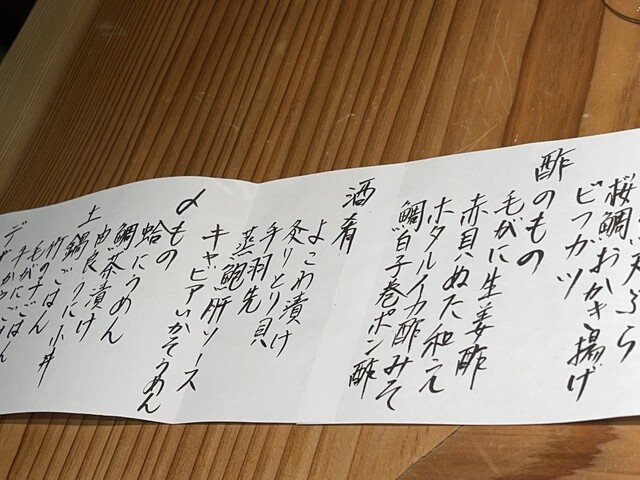 桜鯛おかき揚げ
ビフカツ
酢のもの
毛がに生姜酢
赤貝ぬた和え
ホタルイカ酢みそ
鯛白子巻ポン酢
酒肴
よこわ漬け
炙りとり貝
手羽先
蒸鮑肝ソース
キャビアいかそうめん
〆もの
蛤にうめん
鯛茶漬け
由良うに小丼
土鍋ごはん
竹の子ごはん
毛がにごはん